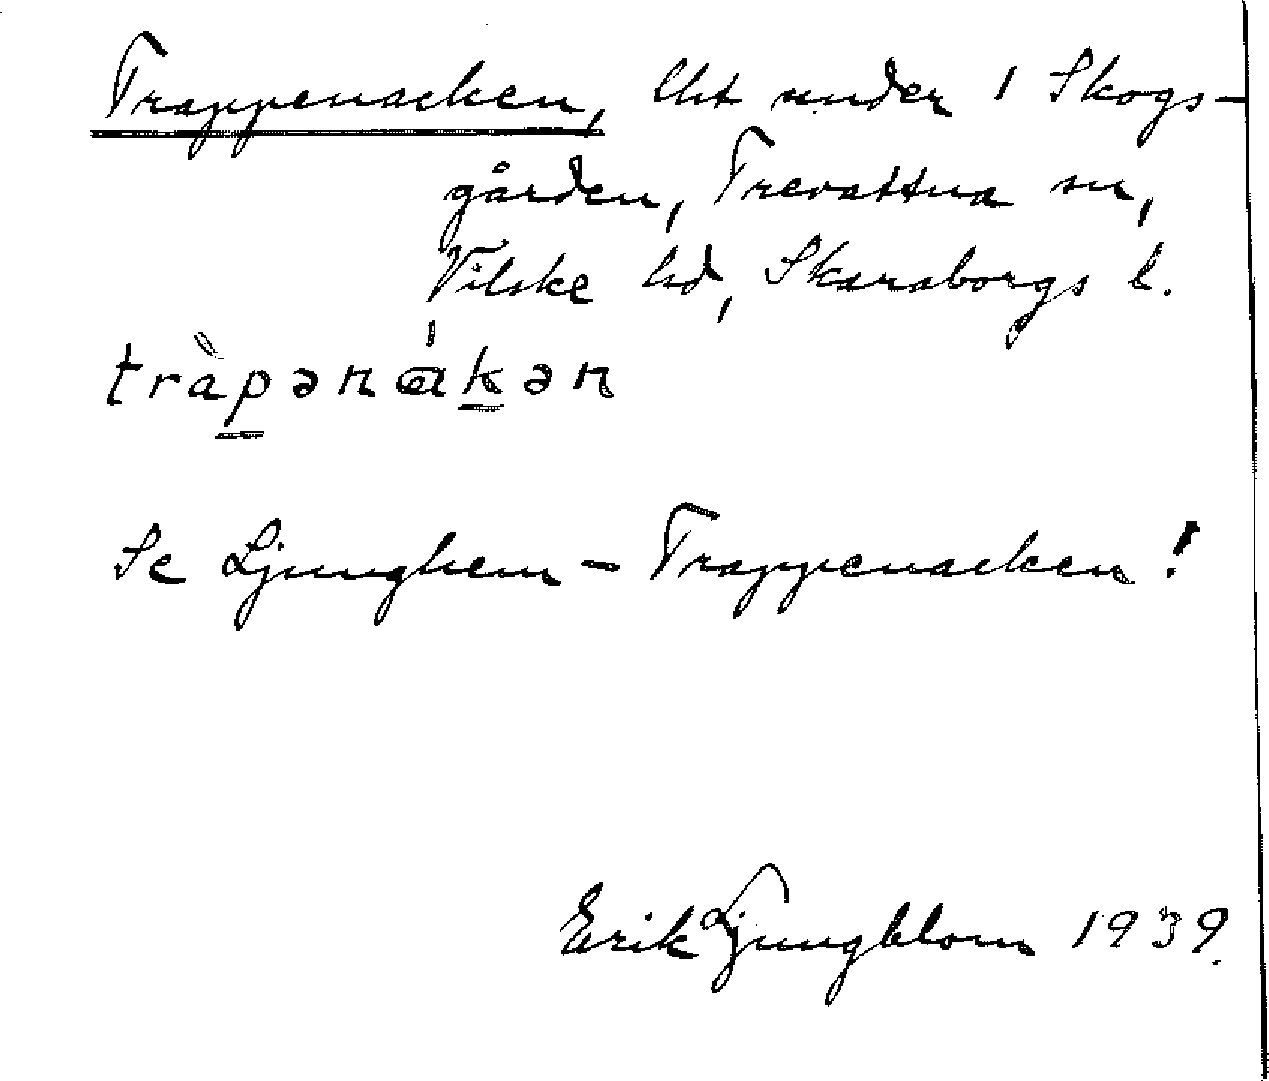 Trappenacken, lht under 1 Skogs-
gården, Trevattna sn,
Vilske hd, Skaraborgs l.
tràpənákən
Se Ljunghem - Trappenacken!
Erik Ljungblom 1939.